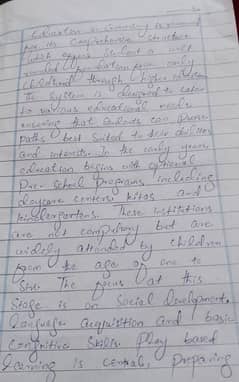 Education in Germany is
for its Comprehensive structure
which students a well
rounded from early
childhood through higher
the System is designed to cater
to various educational needs
ensuring that students can
paths best suited to their abilities
and interests. In the early years,
education begins with optional
Pre-School Programs, including
daycare centers kitas and
kindergartens. These institutions
are not compulsory but are
widely attended by children
from the age of one to
Six. The focus at this
Stage is on Social development,
language acquisition and basic
Cognitive Skills. Play based
learning is central, preparing